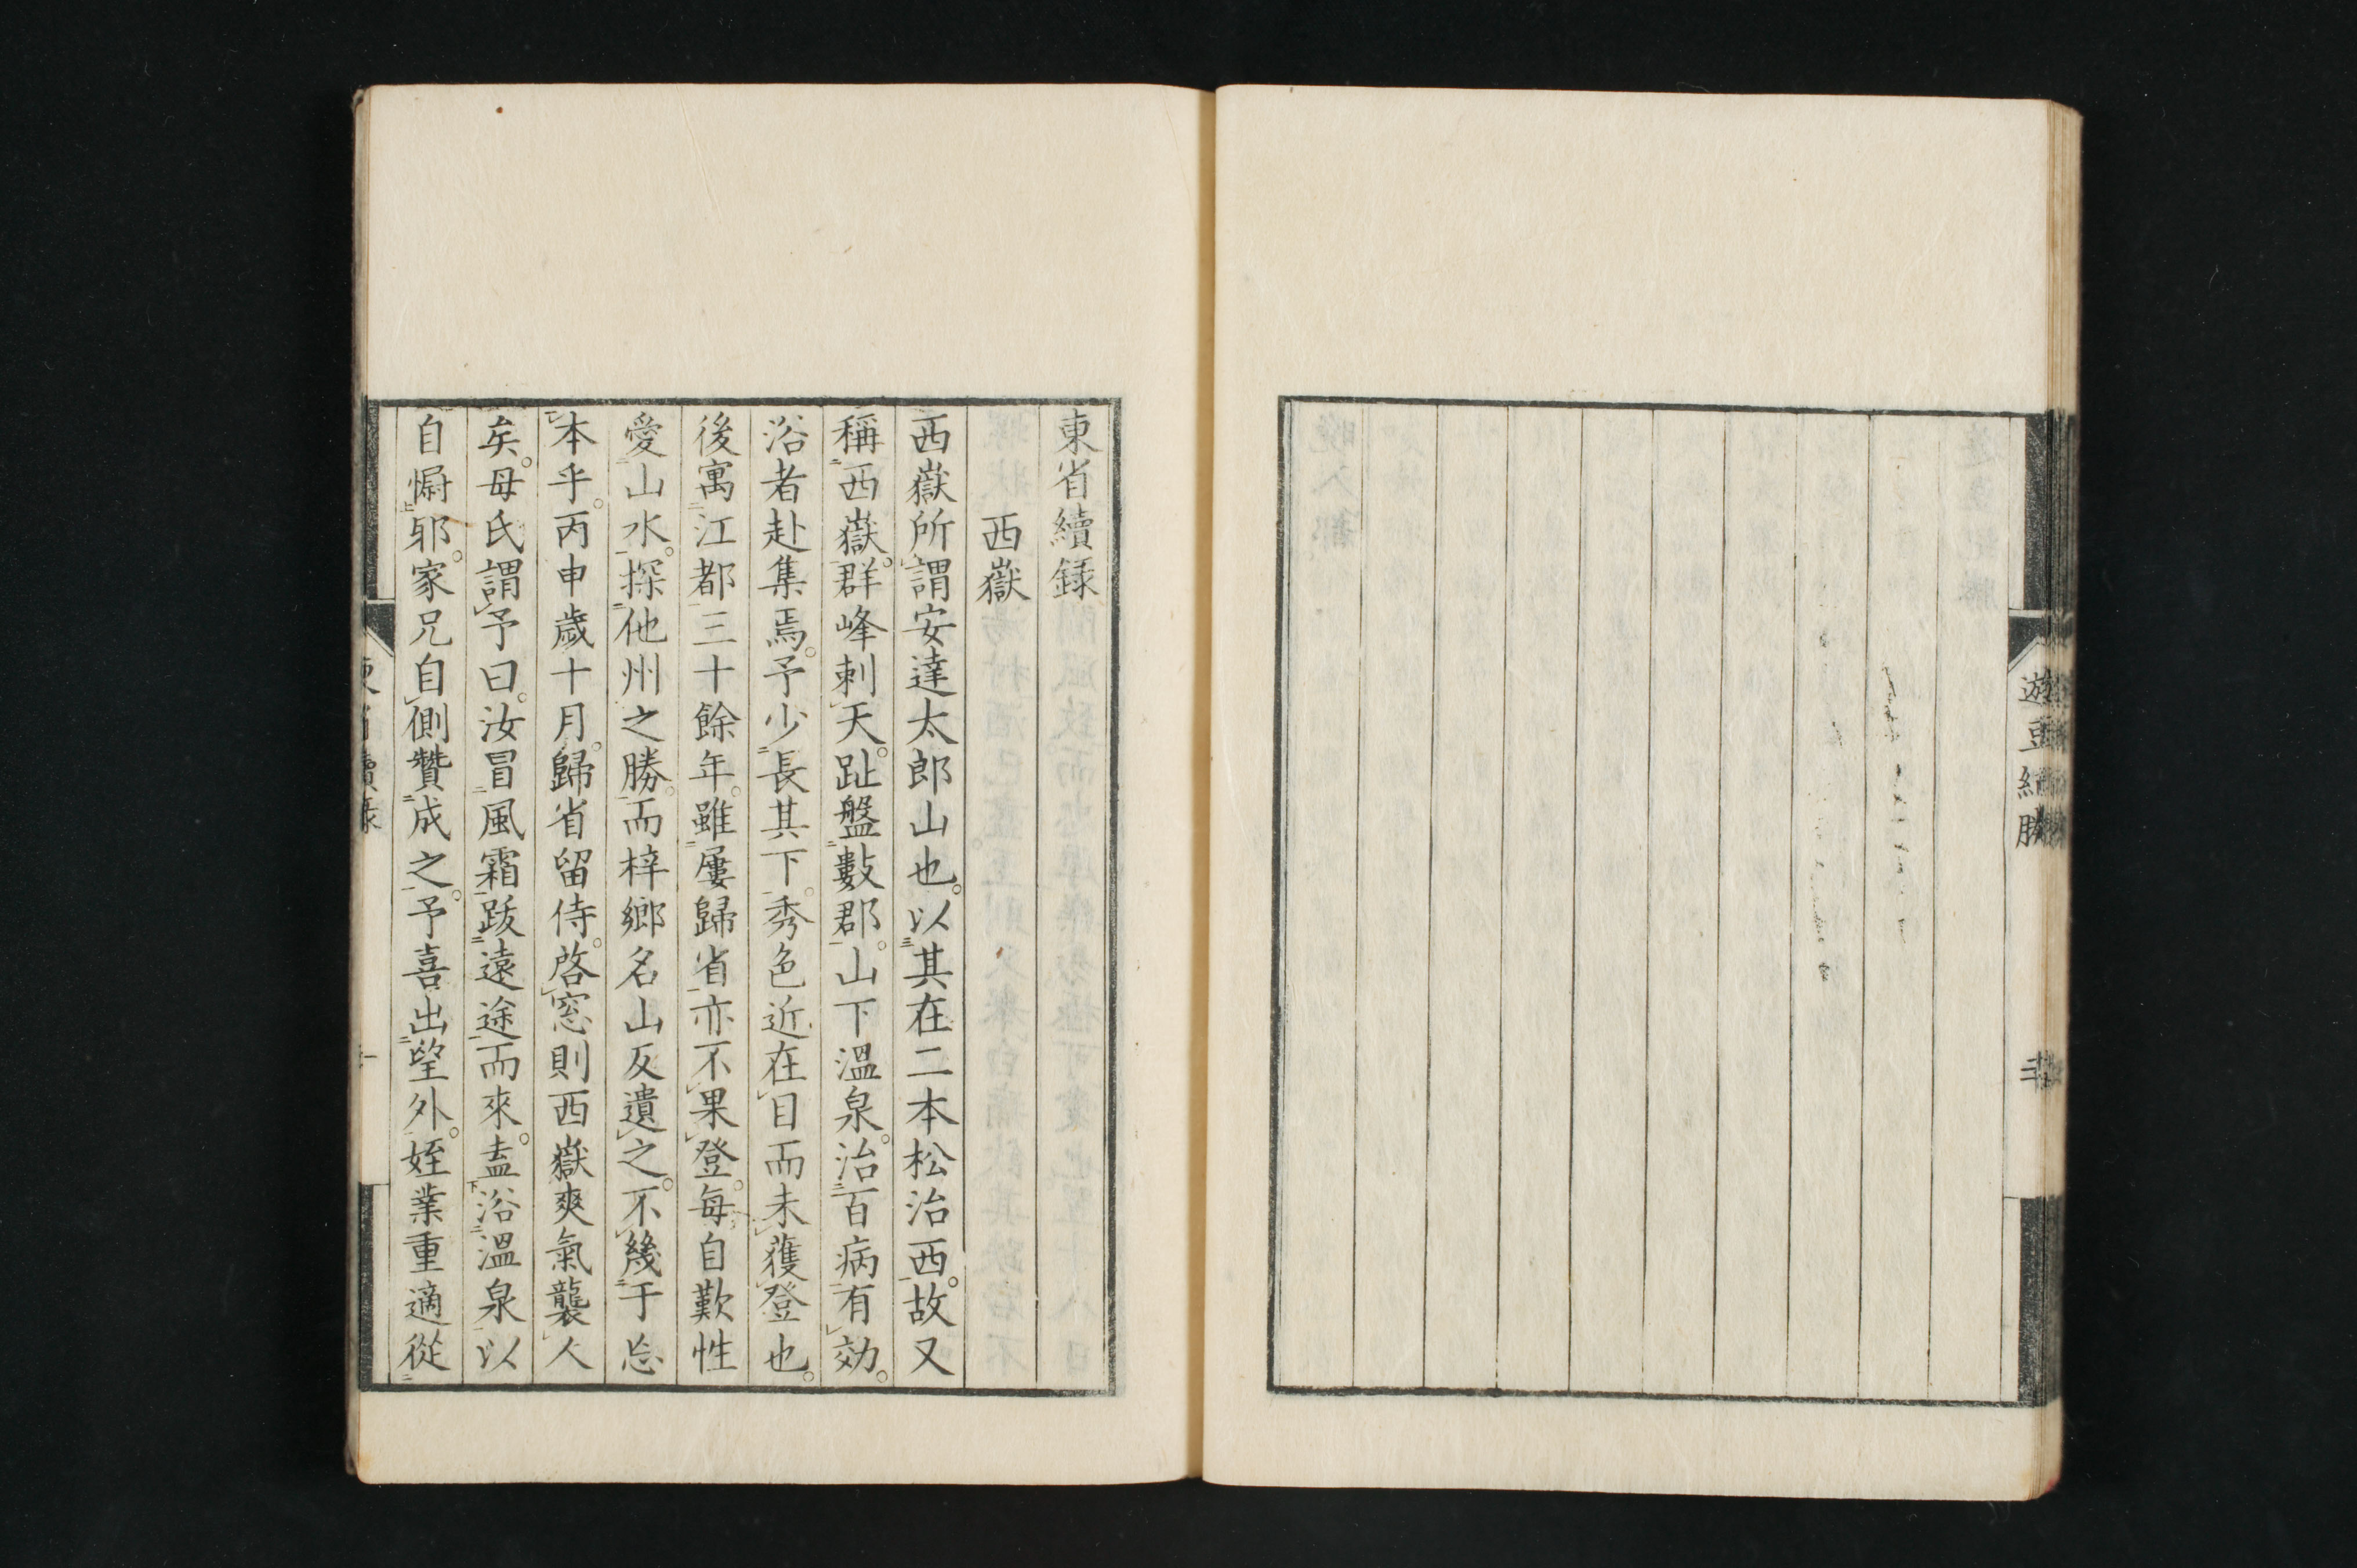 遊豆紀勝
東省續錄
西嶽
西嶽所謂安達太郎山也。以其在二本松治西。故又
稱西嶽。群峰刺天。趾盤數郡。山下溫泉。治百病有効。
浴者赴集焉。予少長其下。秀色近在目而未獲登也。
後寓江都三十餘年。雖屢歸省亦不果登。每自歎性
愛山水。探他州之勝。而梓鄉名山反遺之。不幾于忘
本乎。丙申歲十月。歸省留侍。啓窓則西嶽爽氣襲人
矣。母氏謂予曰。汝冒風霜跋遠途而來。盍浴溫泉以
自㷉邪。家兄自側贊成之。予喜出望外。姪業重適從